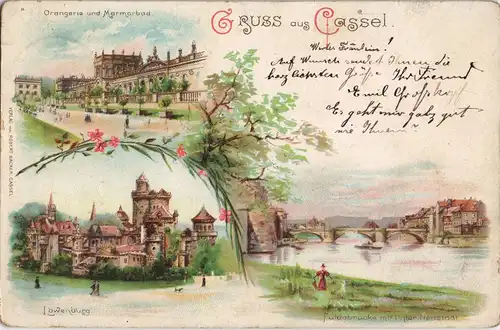 Orangerie und Marmorbad.
GRUSS aus Cassel.
Wertes Fräulein!
Auf Wunsch sendet Ihnen die
herzlichsten Grüße Ihr Freund
Emil
Es geht mir ganz gut
wie Ihnen
VERLAG von ROBERT CASSEL.
Löwenburg
Fuldabrücke mit Unter-Neustadt